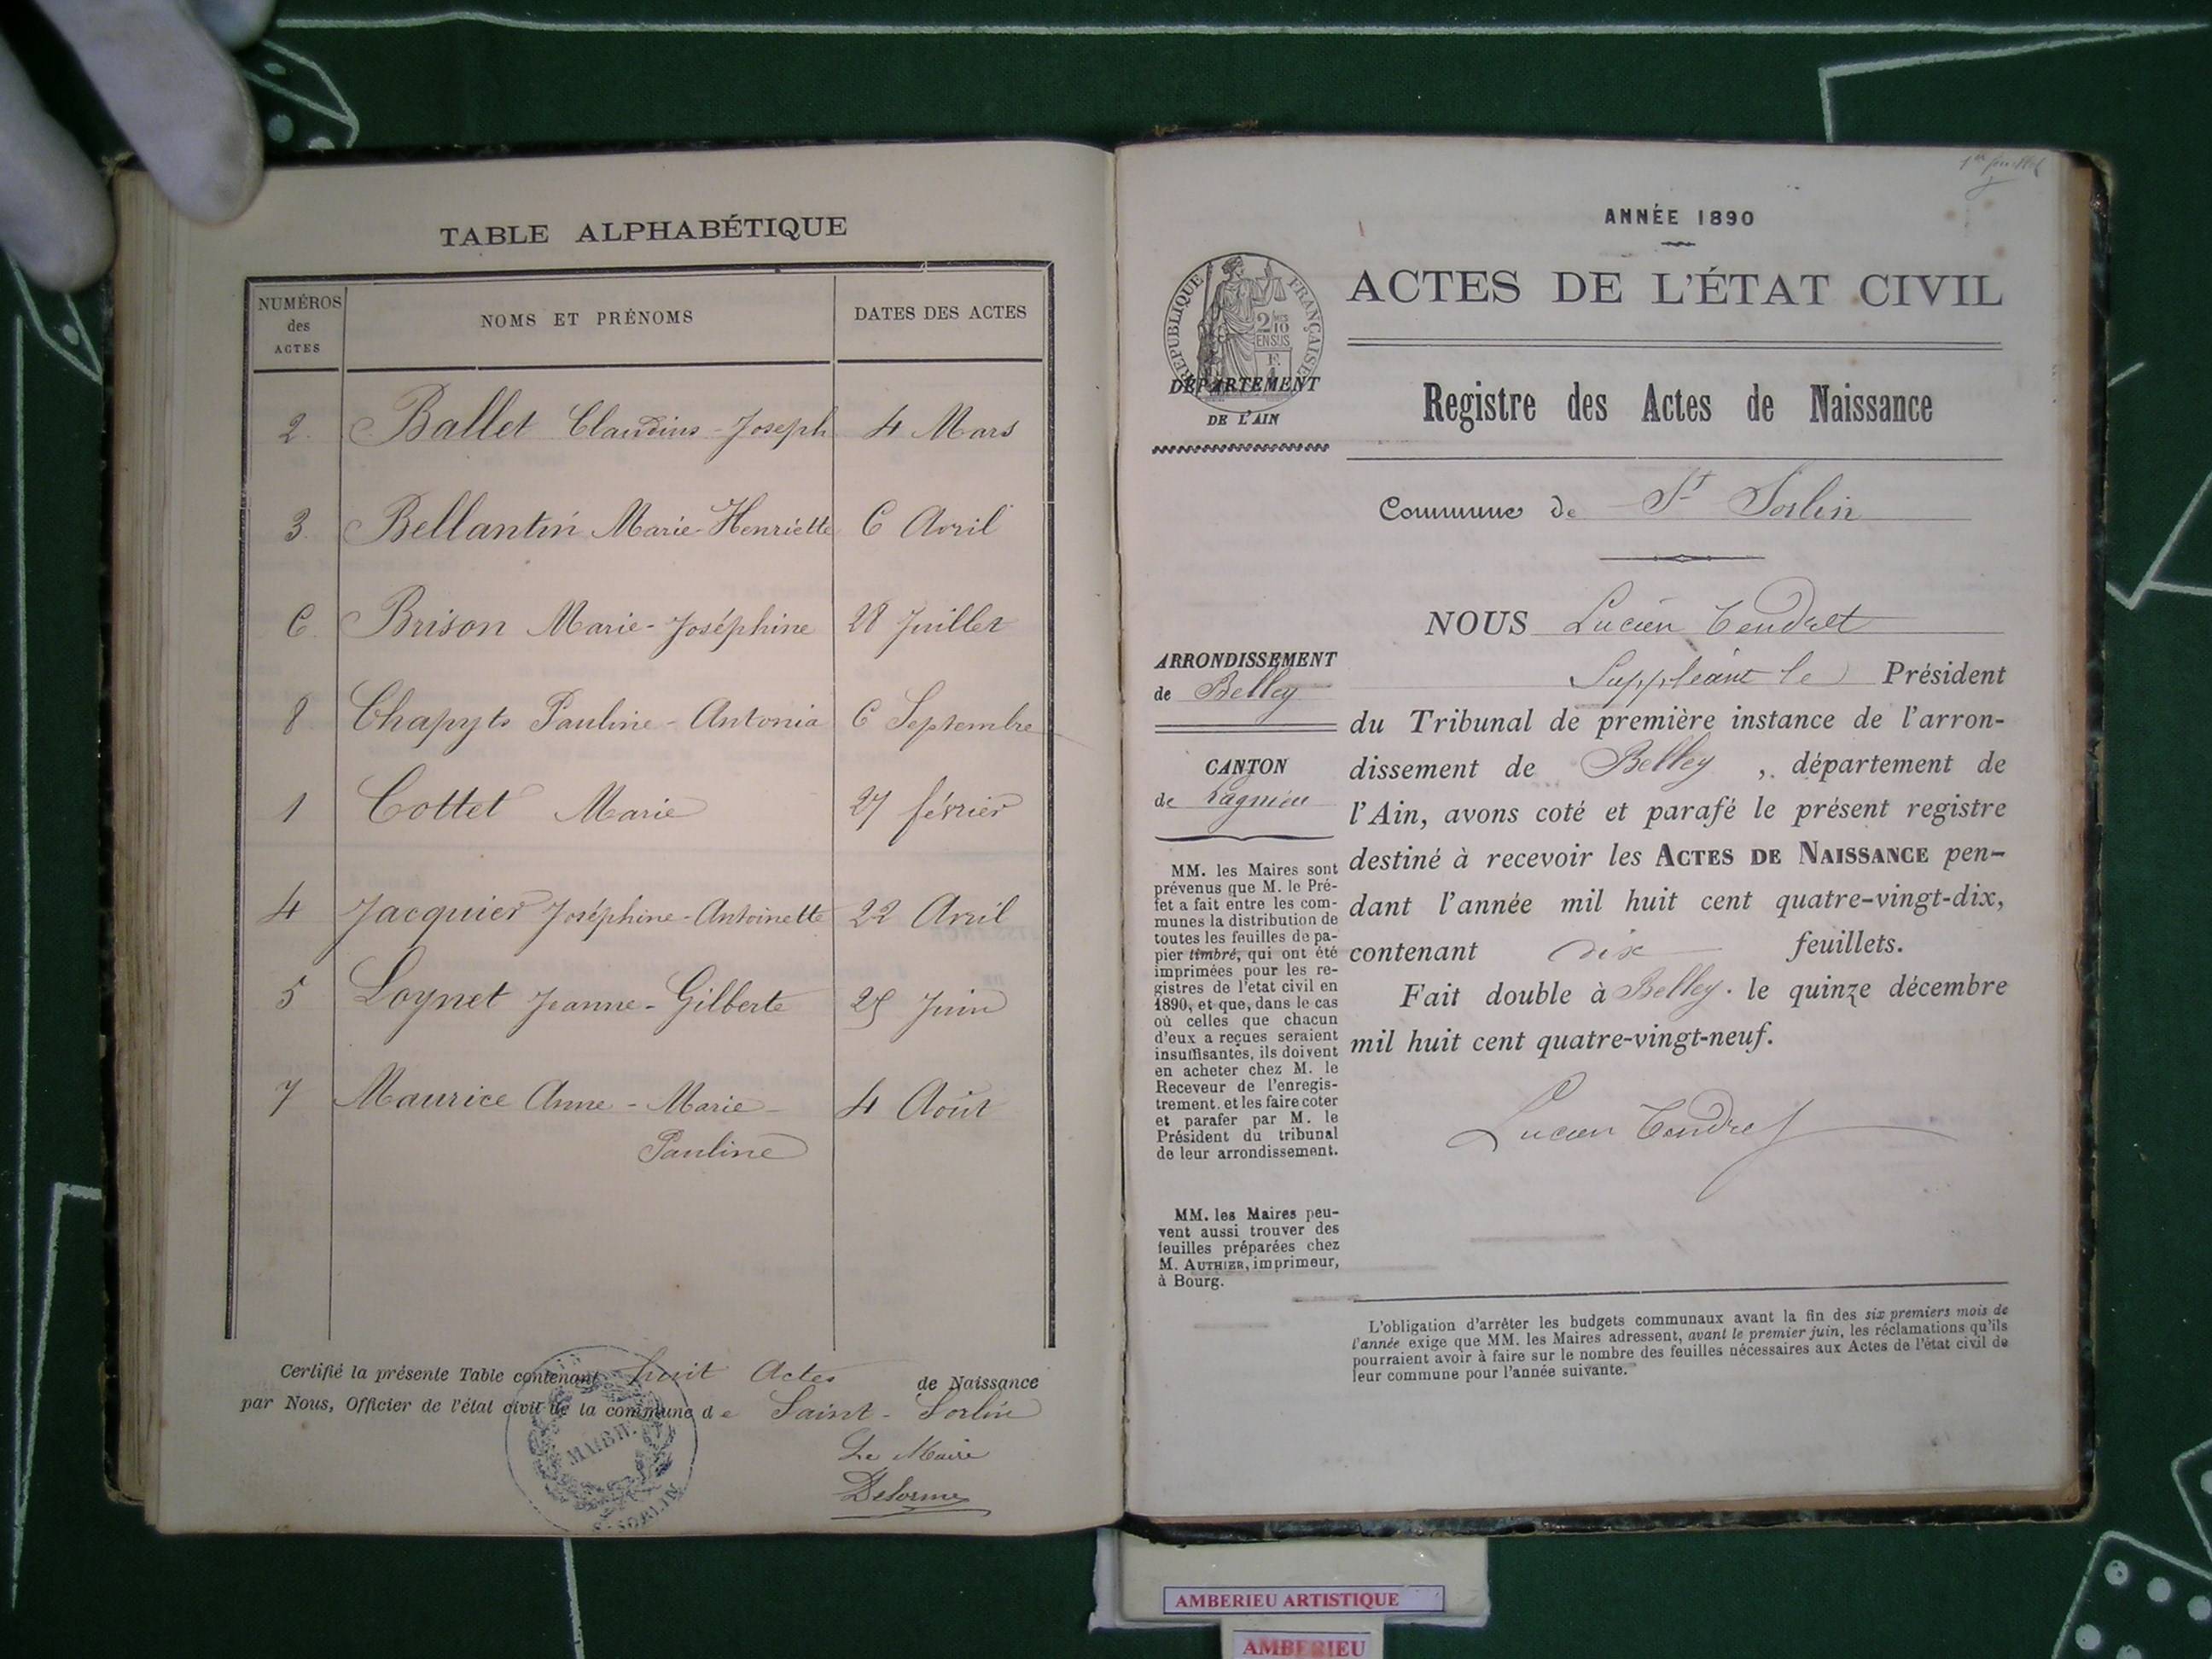 TABLE ALPHABÉTIQUE
NUMÉROS des ACTES
NOMS ET PRÉNOMS
DATES DES ACTES
2. Ballet Claudius-Joseph 4 Mars
3. Bellantin Marie-Henriette 6 Avril
6. Brison Marie-Joséphine 28 Juillet
8. Chapyts Pauline-Antonia 6 Septembre
1 Cottet Marie 27 février
4 Jacquier Joséphine-Antoinette 22 Avril
5 Loynet Jeanne-Gilberte 25 Juin
7 Maurice Anne-Marie- 4 Août
Pauline
Certifié la présente Table contenant huit Actes de Naissance
par Nous, Officier de l'état civil de la commune de Saint-Sorlin
Le Maire
Delorme
MAIRIE
St SORLIN
ANNÉE 1890
RÉPUBLIQUE FRANÇAISE
2/10 EN SUS
DÉPARTEMENT
DE L'AIN
ACTES DE L'ÉTAT CIVIL
Registre des Actes de Naissance
Commune de St Sorlin
ARRONDISSEMENT
de Belley
CANTON
de Lagnieu
MM. les Maires sont
prévenus que M. le Pré-
fet a fait entre les com-
munes la distribution de
toutes les feuilles de pa-
pier timbré, qui ont été
imprimées pour les re-
gistres de l'etat civil en
1890, et que, dans le cas
où celles que chacun
d'eux a reçues seraient
insuffisantes, ils doivent
en acheter chez M. le
Receveur de l'enregis-
trement. et les faire coter
et parafer par M. le
Président du tribunal
de leur arrondissement.
MM. les Maires peu-
vent aussi trouver des
feuilles préparées chez
M. AUTHIER, imprimeur,
à Bourg.
NOUS Lucien Tendret
Suppléant le Président
du Tribunal de première instance de l'arron-
dissement de Belley, département de
l'Ain, avons coté et parafé le présent registre
destiné à recevoir les ACTES DE NAISSANCE pen-
dant l'année mil huit cent quatre-vingt-dix,
contenant dix feuillets.
Fait double à Belley. le quinze décembre
mil huit cent quatre-vingt-neuf.
Lucien Tendret
L'obligation d'arrêter les budgets communaux avant la fin des six premiers mois de
l'année exige que MM. les Maires adressent, avant le premier juin, les réclamations qu'ils
pourraient avoir à faire sur le nombre des feuilles nécessaires aux Actes de l'état civil de
leur commune pour l'année suivante.
AMBERIEU ARTISTIQUE
AMBERIEU